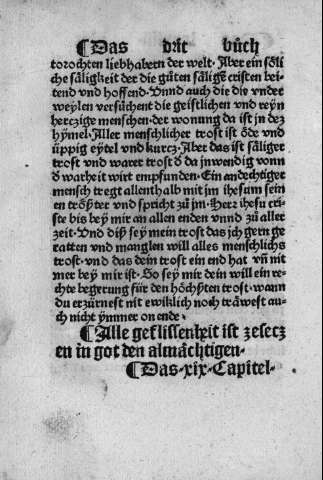 ¶Das drit bůch
torochten liebhabern der welt · Aber ein söli
che säligkeit der die gůten sälige cristen bei
tend vnd hoffend · Vnnd auch die die vnder
weylen versůchent die geistlichen vnd reyn
herczige menschen · der wonung da ist jn dez
hymel · Aller menschlicher trost ist öde vnd
üppig eytel vnd kurcz · Aber das ist säliger
trost vnd warer trost d da jnwendig vonn
d warheit wirt empfunden · Ein andechtiger
mensch tregt allenthalb mit jm ihesum sein
en tröster vnd spricht zů jm · Herr ihesu cri
ste bis bey mir an allen enden vnnd zů aller
zeit · Vnd diß sey mein trost das jch gern ge
ratten vnd manglen will alles menschlichs
trost · vnd das dein trost ein end hat vñ nit
mer bey mir ist · So sey mir dein will ein re
chte begerung für den höchsten trost · wann
du erzürnest nit ewiklich noch träwest au
ch nicht ymmer on ende ·
¶Alle geflissenheit ist ze secz
en in got den almächtigen ·
¶Das · xix · Capitel ·